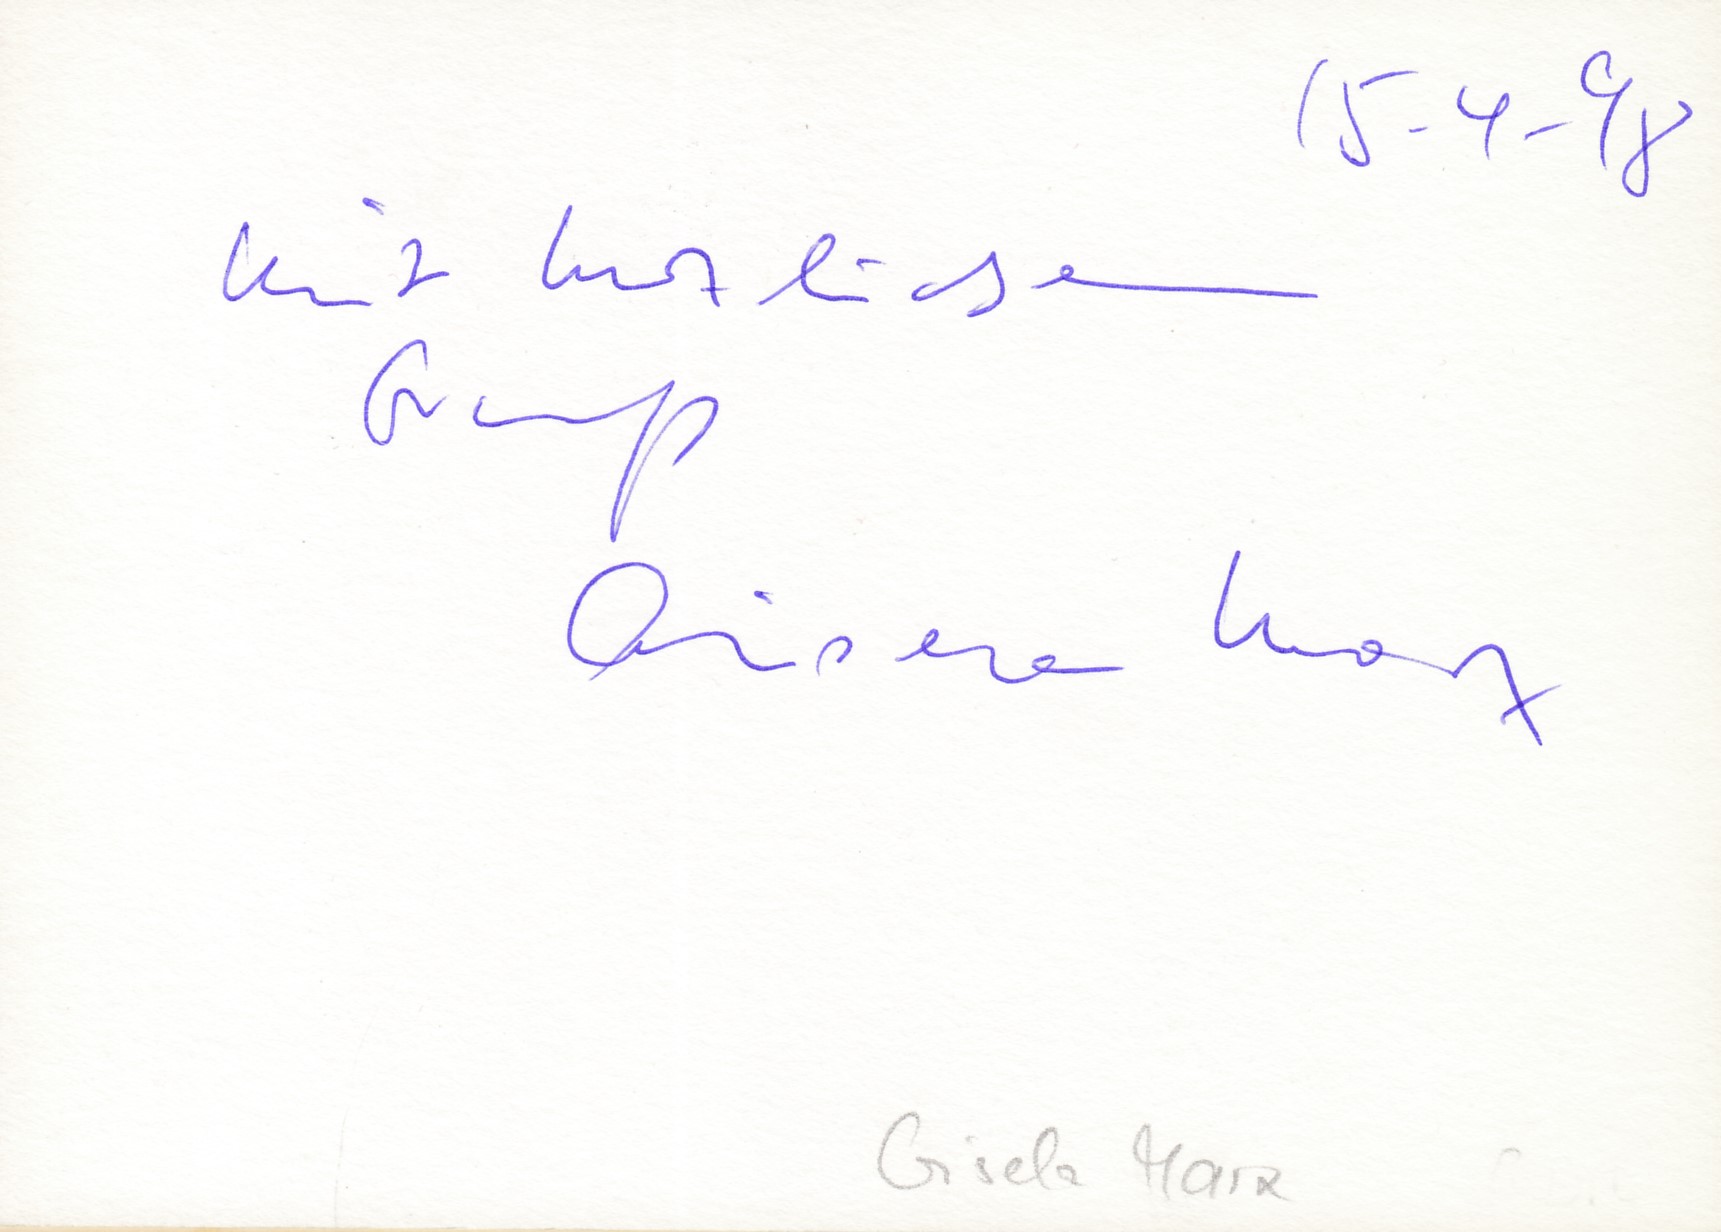 15-4-98
Mit herzlichem
Gruß
Gisela Marx
Gisela Marx